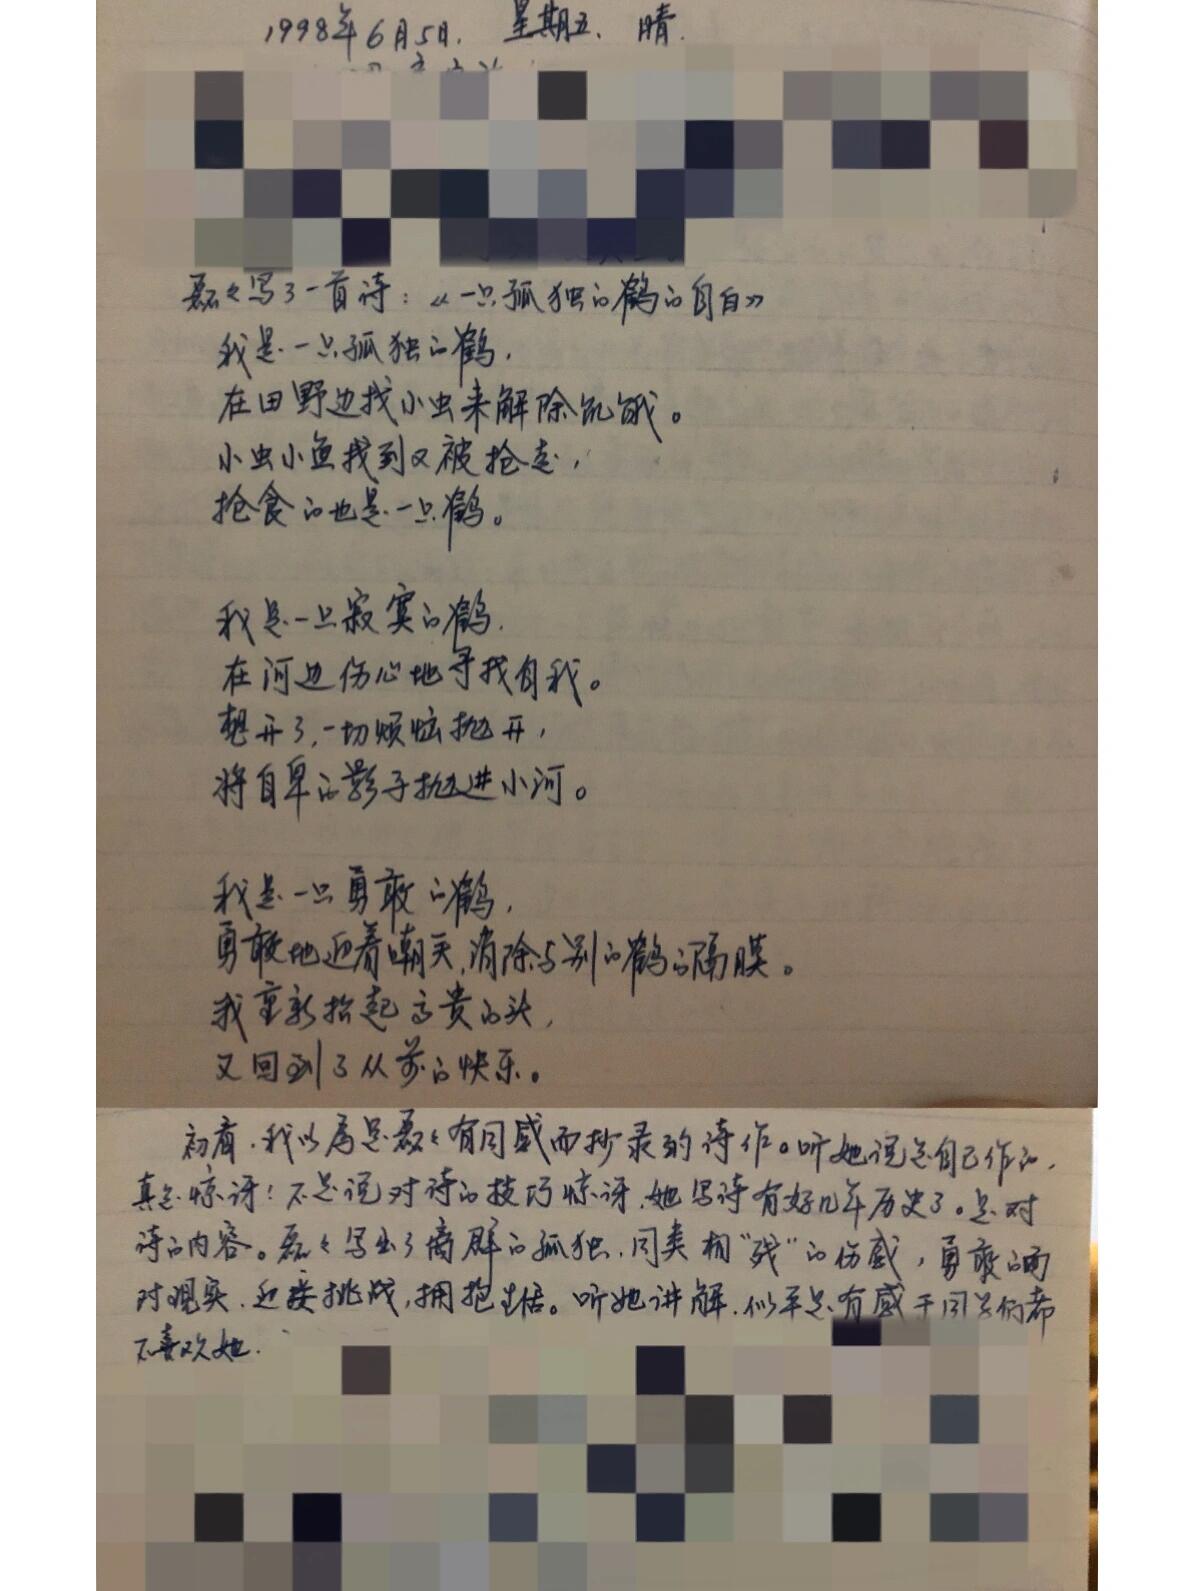 1998年6月5日. 星期五、晴.
磊々写了一首诗：《一只孤独的鹤的自白》
我是一只孤独的鹤,
在田野边找小虫来解除饥饿。
小虫小鱼找到又被抢走,
抢食的也是一只鹤。
我是一只寂寞的鹤,
在河边伤心地寻找自我。
想开了,一切烦恼抛开,
将自卑的影子抛进小河。
我是一只勇敢的鹤,
勇敢地迎着嘲天,消除与别的鹤的隔膜。
我重新抬起高贵的头,
又回到了从前的快乐。
初看,我以为是磊々有同感而抄录的诗作。听她说是自己作的,
真是惊讶！不是说对诗的技巧惊讶,她写诗有好几年历史了。是对
诗的内容。磊々写出了离群的孤独,同类相“残”的伤感,勇敢的面
对现实、迎接挑战,拥抱生活。听她讲解,似乎是有感于同学们都
不喜欢她.